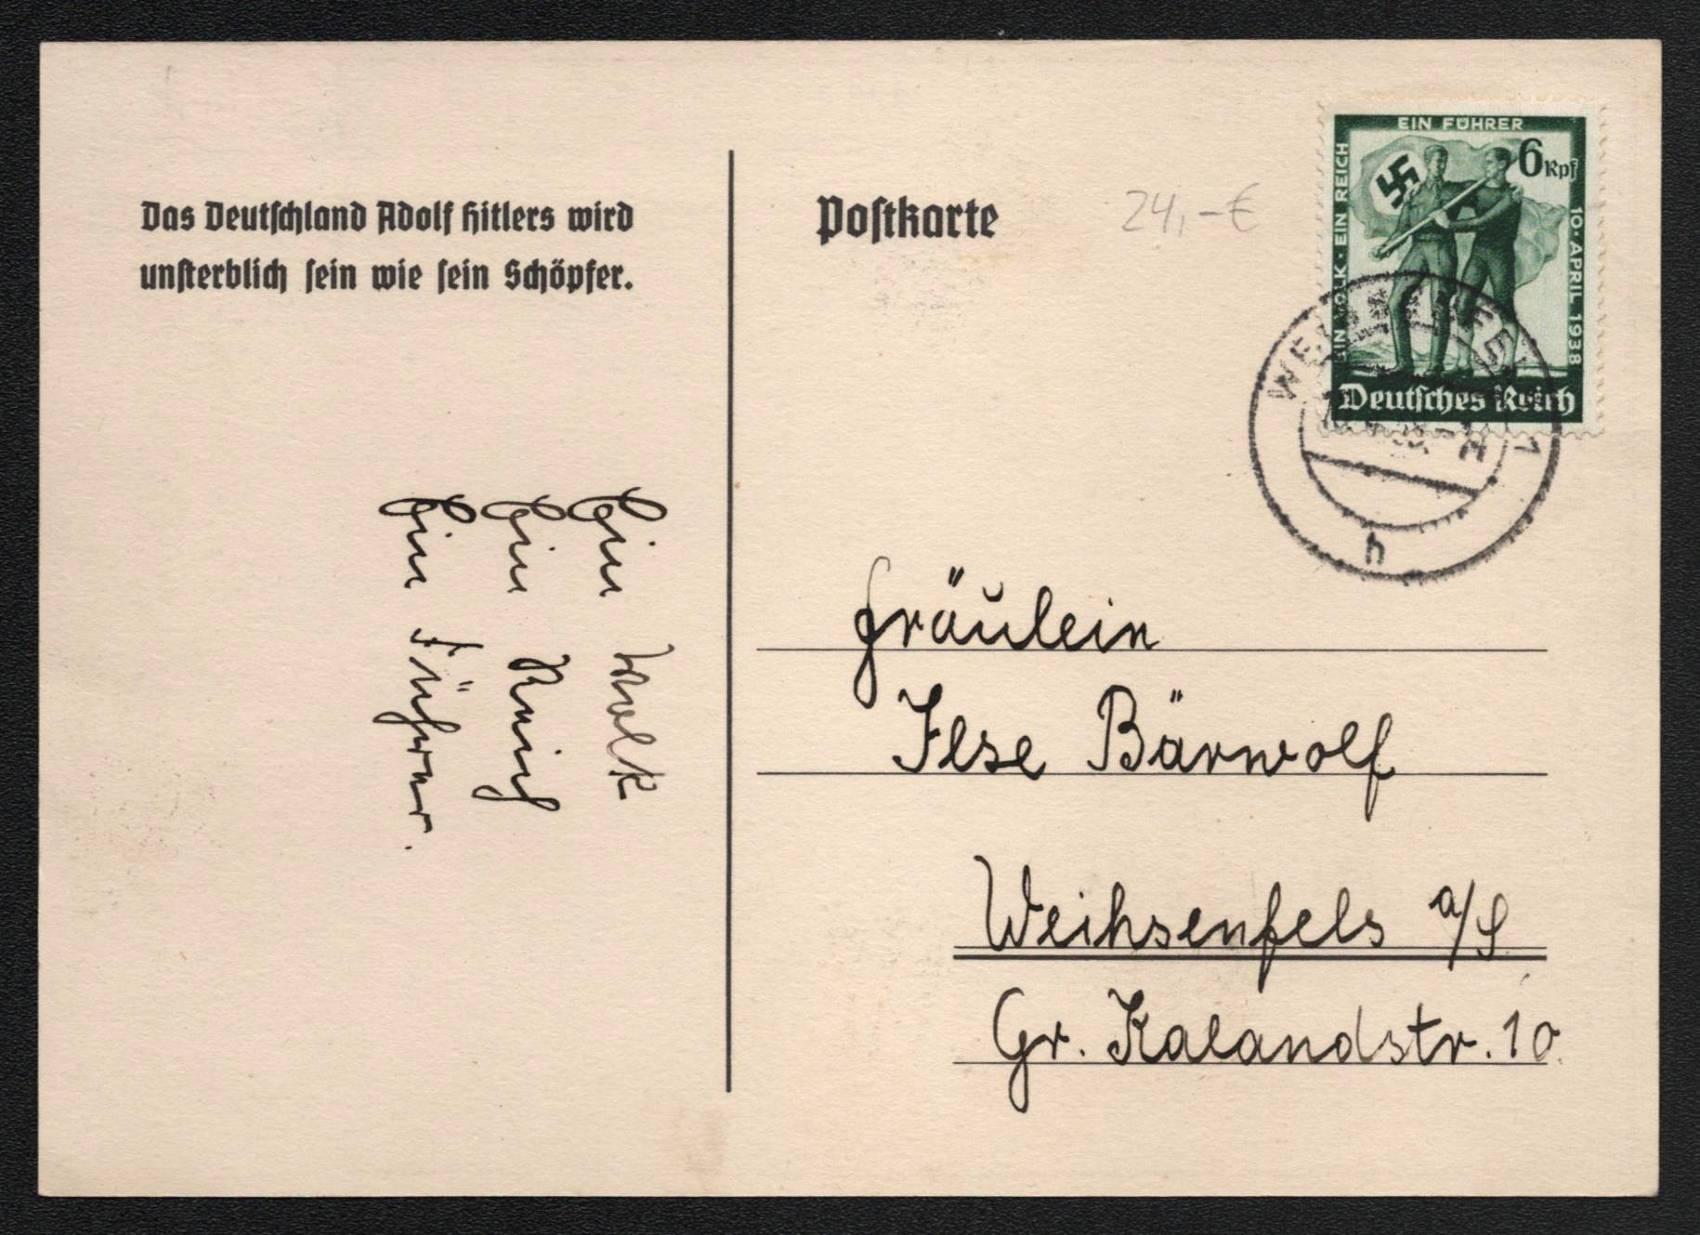 Das Deutschland Adolf Hitlers wird
unsterblich sein wie sein Schöpfer.
Ein Volk
Ein Reich
Ein Führer.
Postkarte
24,-€
EIN VOLK · EIN REICH
EIN FÜHRER
10. APRIL 1938
6 Rpf
Deutsches Reich
h
Fräulein
Ilse Bärwolf
Weihsenfels a/S
Gr. Kalandstr. 10.